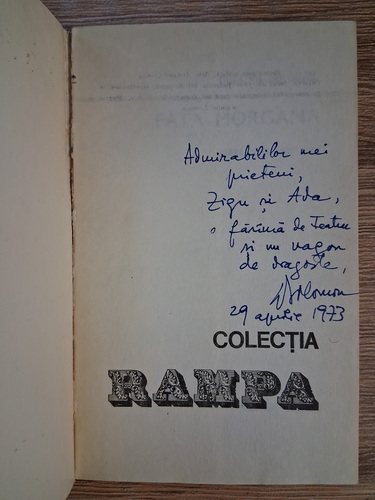 Admirabililor mei
prieteni,
Zigu și Ada,
o fărâmă de Teatru
și un vagon
de dragoste,
D Solomon
29 aprilie 1973
COLECȚIA
RAMPA